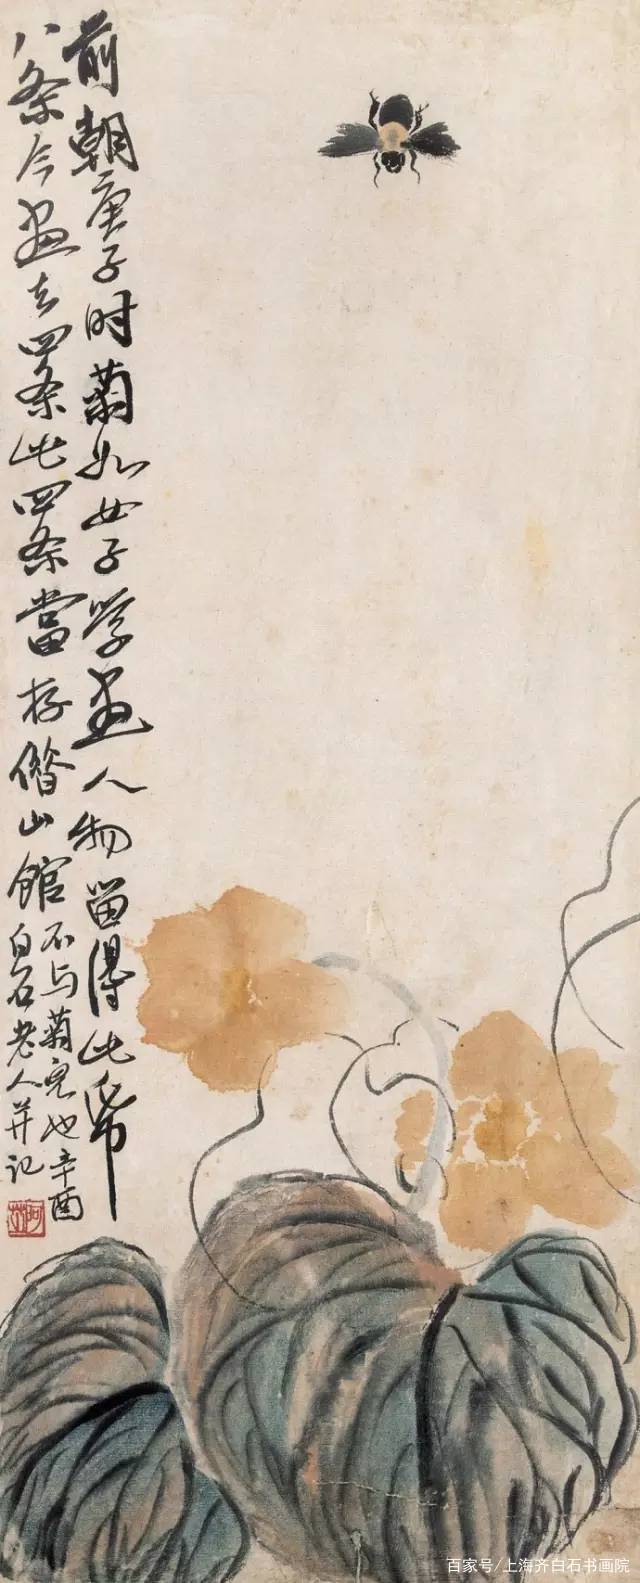 前朝庚子时菊如女子学画人物留得此帋
八条今画去四条此四条當存借山館
不与菊儿也辛酉
白石老人并记
阿芝
百家号/上海齐白石书画院